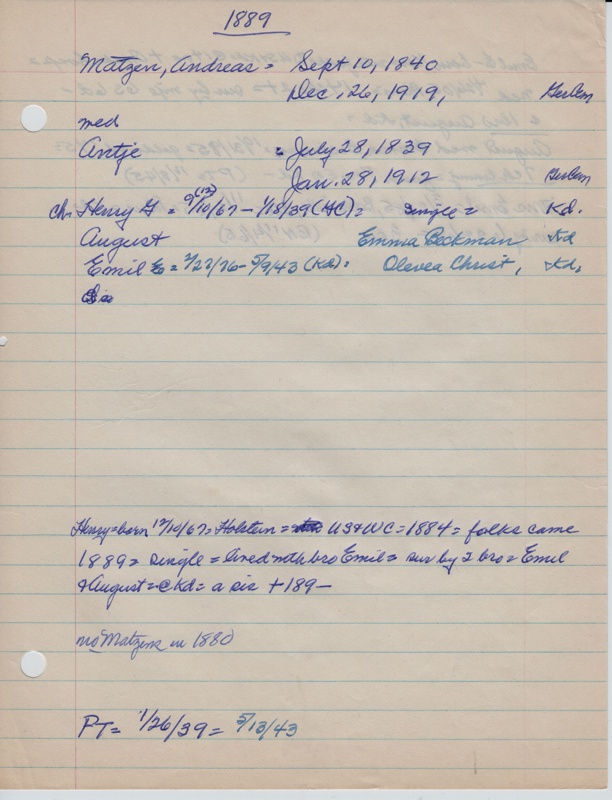 1889
Matzen, Andreas = Sept 10, 1840
Dec. 26, 1919, GerCem
med
Antje = July 28, 1839
Jan. 28, 1912 GerCem
ch. Henry G = 9(12)/10/67 - 1/18/39 (HC) = single = Kd.
August Emma Beckman Kd
Emil = 2/27/76 - 5/9/43 (Kd) = Olevea Christ, Kd.
Henry = born 12/10/67 = Holstein = US & WC = 1884 = folks came
1889 = single = lived with bro Emil = sur by 2 bro = Emil
& August = Kd = a sis + 189-
no Matzens in 1880
PT = 1/26/39 = 5/13/43